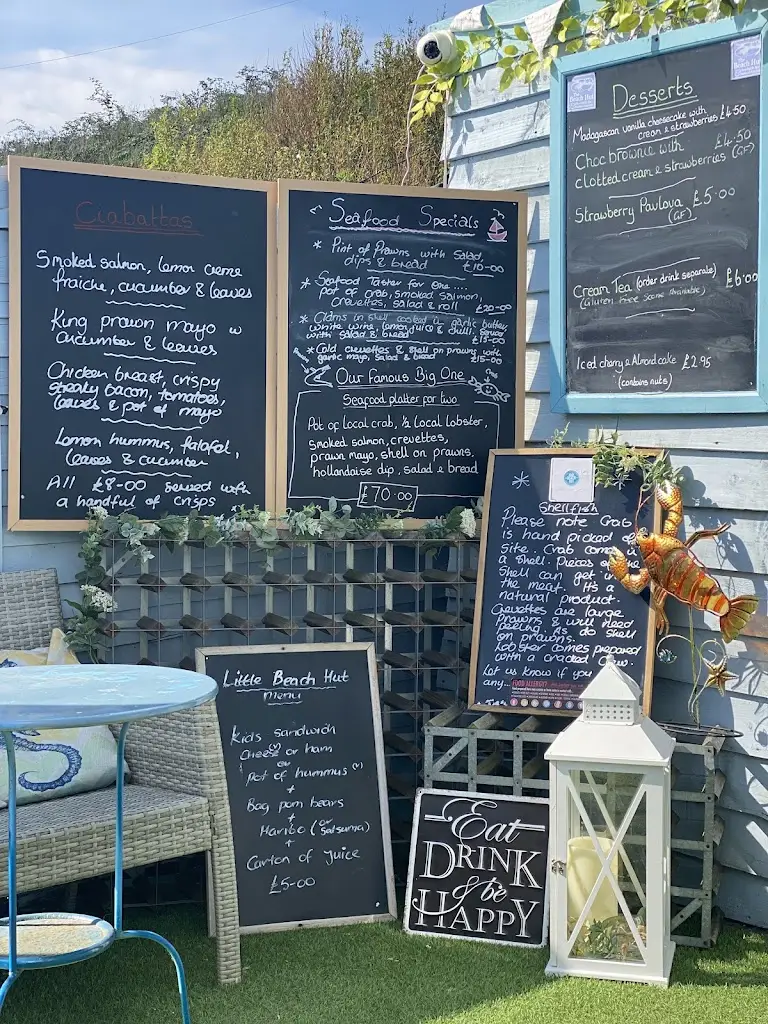 Ciabattas
Smoked salmon, lemon creme
fraiche, cucumber & leaves
King prawn mayo w
cucumber & leaves
Chicken breast, crispy
streaky bacon, tomatoes,
leaves & pot of mayo
Lemon hummus, falafal,
leaves & cucumber
All £8-00 served with
a handful of crisps
Seafood Specials
* Pint of Prawns with Salad,
dips & bread £10-00
* Seafood Taster for one ....
pot of crab, smoked salmon,
crevettes, salad & roll £20-00
* Clams in shell cooked in garlic butter,
white wine, lemon juice & chilli. Served
with salad & bread £15-00
* Cold crevettes & shell on prawns with
garlic mayo, salad & bread £15-00
Our Famous Big One
Seafood platter for two
Pot of local crab, 1/2 local Lobster,
smoked salmon, crevettes,
prawn mayo, shell on prawns,
hollandaise dip, salad & bread
£70.00
The Beach Hut
Desserts
Madagascan vanilla cheesecake with
cream & strawberries £4.50
Choc brownie with £4.50
clotted cream & strawberries (GF)
Strawberry Pavlova (GF) £5.00
Cream Tea (order drink separate) £6.00
(Gluten Free Scone Available)
Iced cherry & Almond cake £2.95
(contains nuts)
Shellfish
Please note Crab
is hand picked off
site. Crab comes in
a shell. Pieces of the
Shell can get in
the meat. It's a
natural product.
Crevettes are large
Prawns & will need
peeling. As do shell
on prawns.
Lobster comes prepared
with a cracked claw.
Let us know if you
any...
FOOD ALLERGY?
Little Beach Hut
menu
Kids sandwich
Cheese (v) or ham
or
pot of hummus (v)
+
Bag pom bears
+
Haribo (or Satsuma)
+
Carton of Juice
£5-00
Eat
DRINK
& be
HAPPY